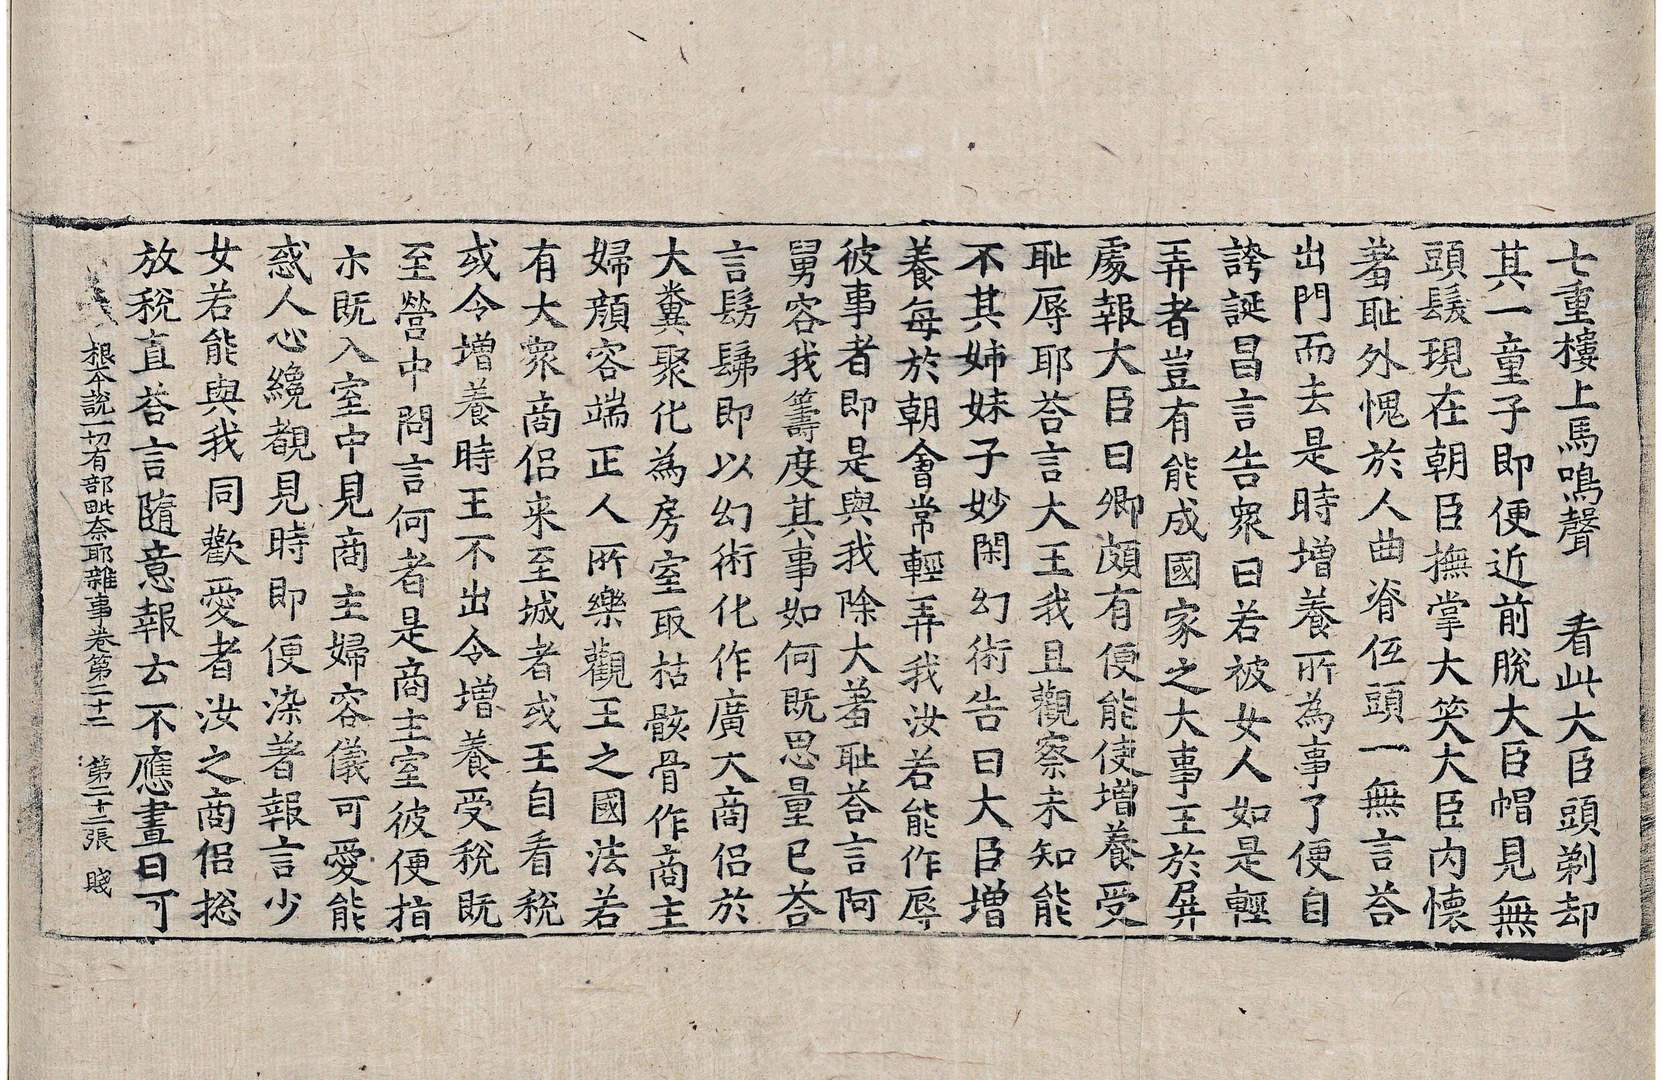 七重樓上馬鳴聲　看此大臣頭剃却
其一童子即便近前脫大臣帽見無
頭髮現在朝臣撫掌大笑大臣內懷
羞恥外愧於人曲脊伍頭一無言荅
出門而去是時增養所為事了便自
誇誕昌言告衆曰若被女人如是輕
弄者豈有能成國家之大事王於屛
處報大臣曰卿頗有便能使增養受
恥辱耶荅言大王我且觀察未知能
不其姉妹子妙閑幻術告曰大臣增
養每於朝會常輕弄我汝若能作辱
彼事者即是與我除大羞恥荅言阿
舅容我籌度其事如何既思量已荅
言髣髴即以幻術化作廣大商侶於
大糞聚化為房室取枯骸骨作商主
婦顔容端正人所樂觀王之國法若
有大衆商侶来至城者或王自看稅
或令增養時王不出令增養受稅既
至營中問言何者是商主室彼便指
示既入室中見商主婦容儀可愛能
惑人心纔覩見時即便染著報言少
女若能與我同歡愛者汝之商侶捴
放稅直荅言隨意報云不應晝日可
根本說一切有部毗奈耶雜事卷第二十二　第二十二張　賤